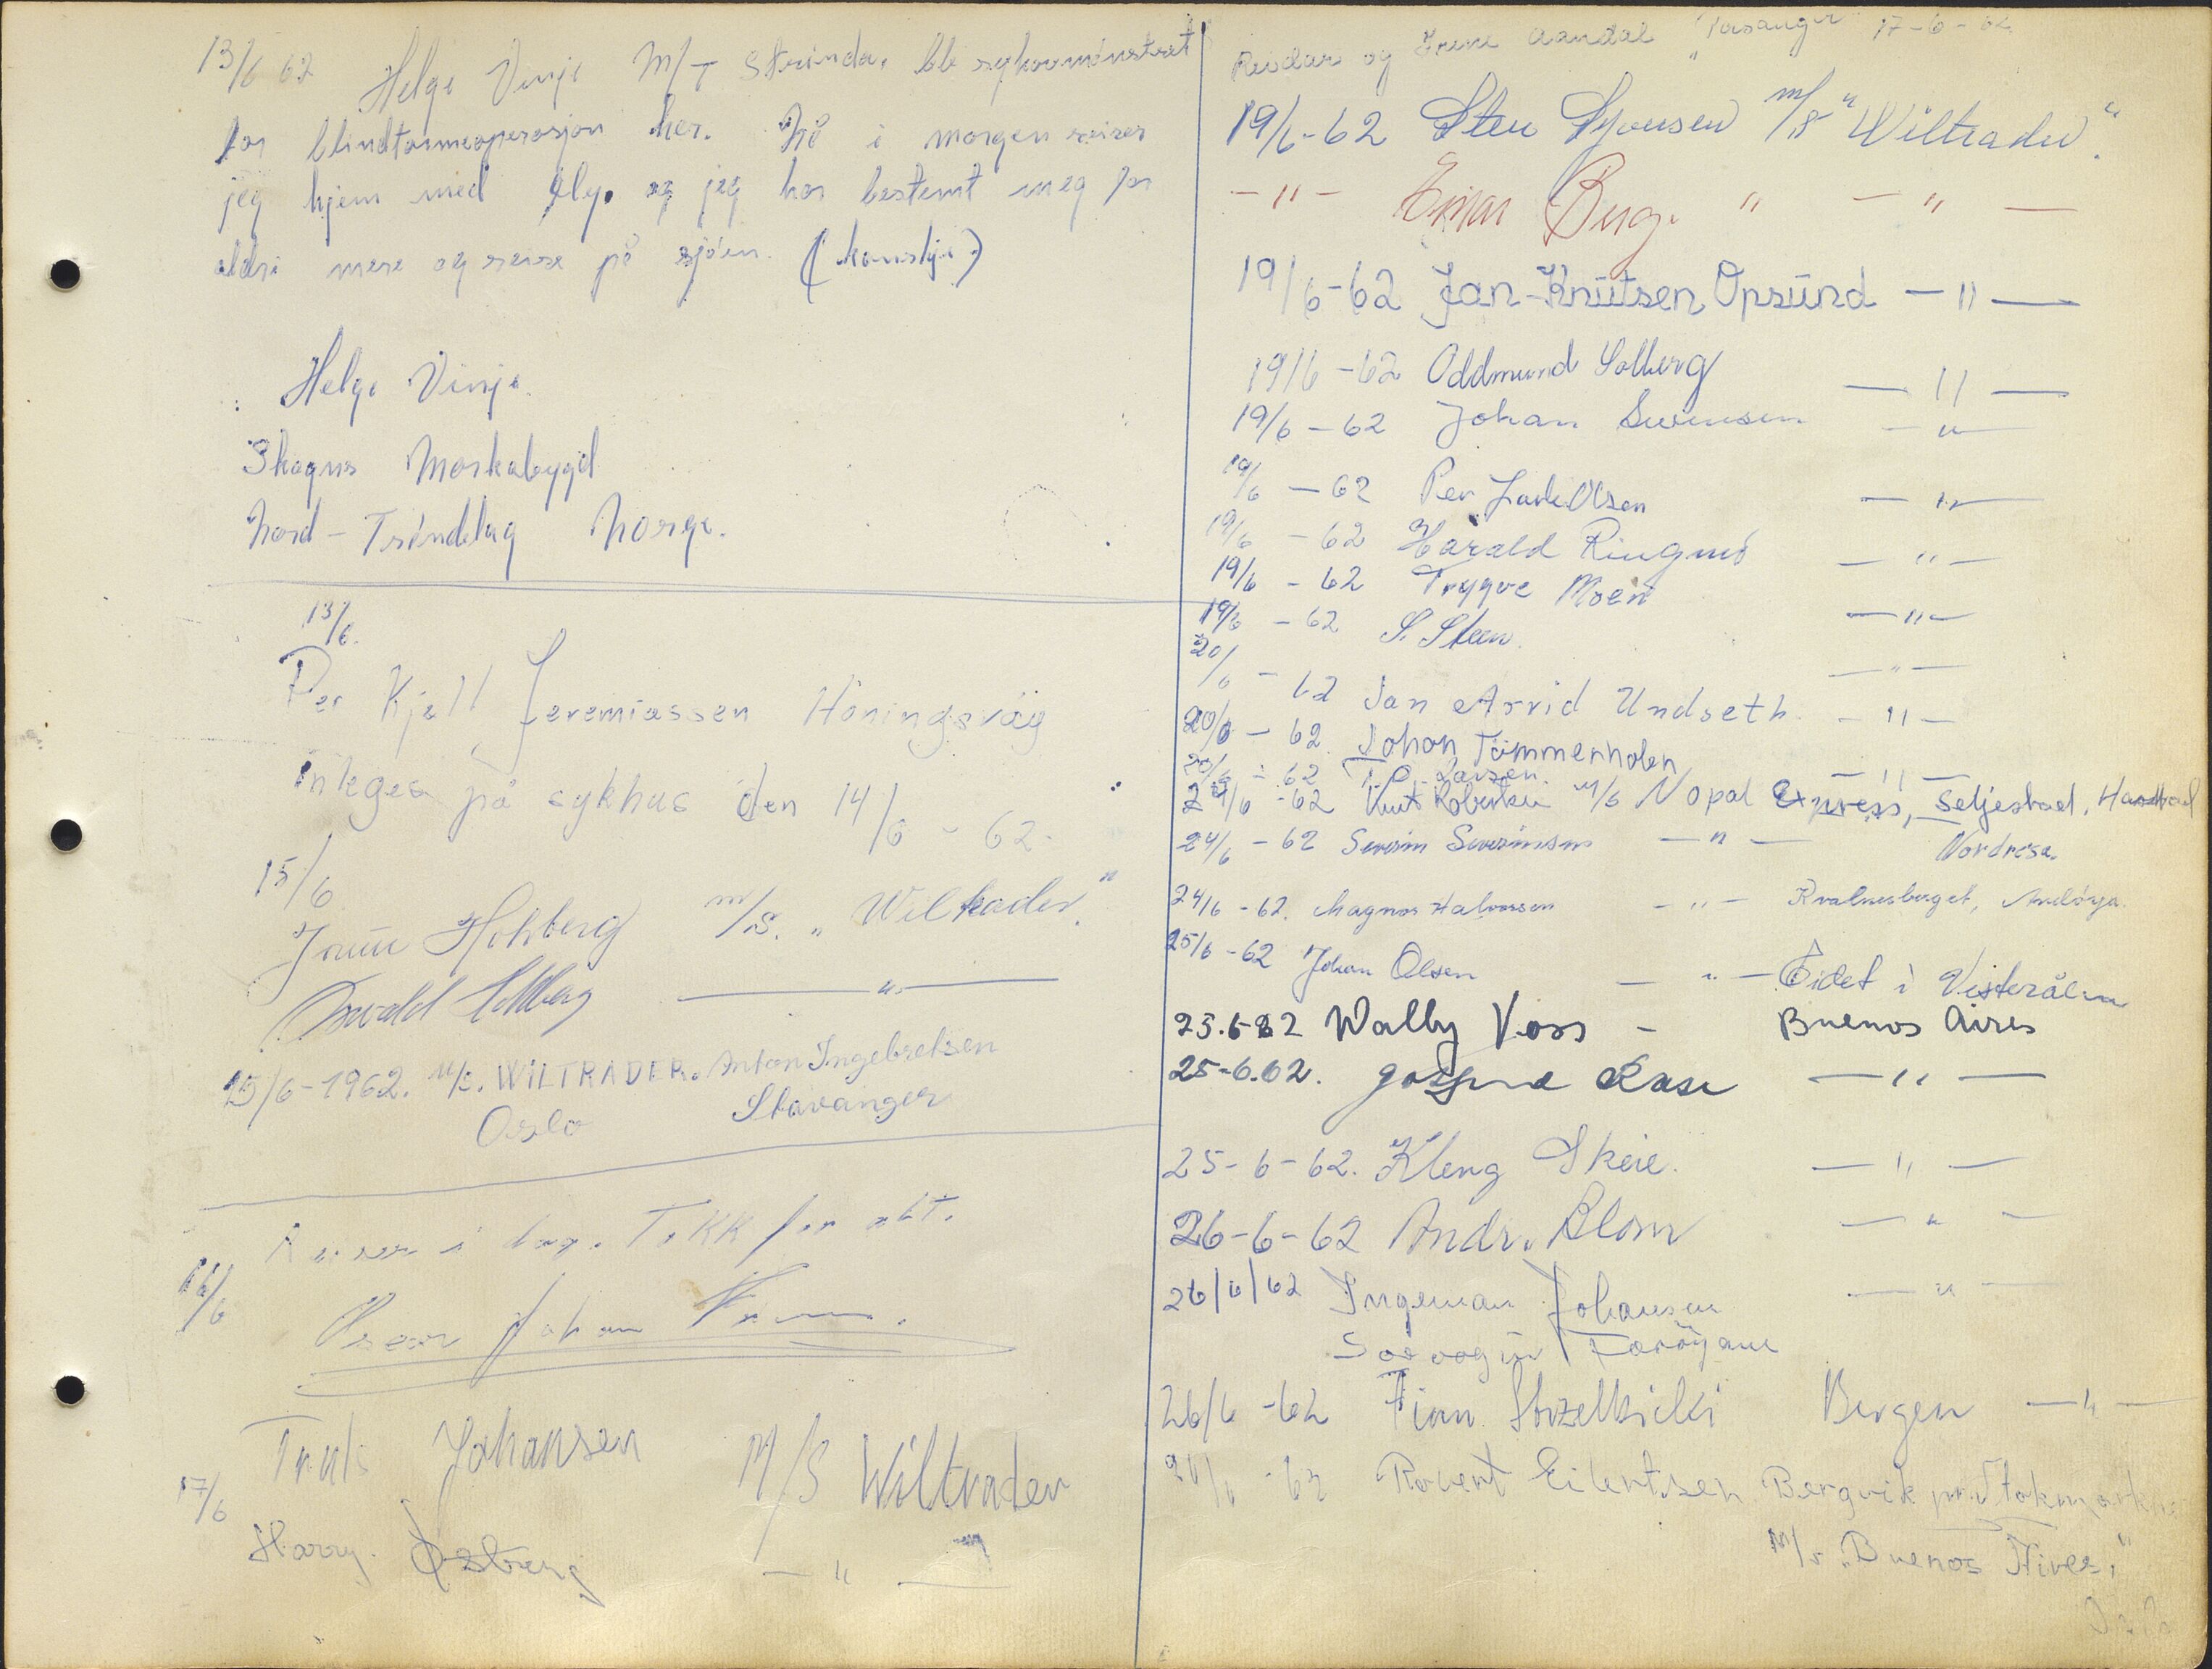 13/6 62 Helge Vinje M/T Strinda, ble sykavmönstret
for blindtarmoperasjon her. Nå i morgen reiser
jeg hjem med fly. og jeg har bestemt meg for
aldri mere og reise på sjöen. (kanskje)
Helge Vinje.
Skogns Markabygd
Nord-Tröndelag Norge.
13/6.
Per Kjell Jeremiassen Honingsvåg
inleges på sykhus den 14/6 - 62.
15/6
Holberg m/s. "Wiltrader."
— " —
15/6-1962. M/S. WILTRADER. Anton Ingebretsen
Oslo Stavanger
Reiser i dag. Takk for alt.
16/6
Oscar Johan
Truls Johansen M/S Wiltrader
17/6
Harry Østberg — " —
Reidar og Irene Aandal "Porsanger" 17-6-62
19/6-62 Sten Syversen m/s "Wiltrader".
— " — Einar Berg. " — " —
19/6-62 Jan-Knutsen Opsund — " —
19/6-62 Oddmund Solberg — " —
19/6-62 Johan Svensen — " —
19/6-62 Per Olsen — " —
19/6-62 Harald Ringmo — " —
19/6-62 Trygve Moen — " —
19/6-62 S. Steen. — " —
20/6-62 Jan Arvid Undseth. — " —
20/6-62 Johan Tömmerholen — " —
20/6-62 Larsen
24/6-62 Knut Robertsen M/S Nopal Express, Seljestad, Harstad
24/6-62 Severin Severinsen — " — Nordreisa.
24/6-62. Magnar Halvorsen — " — Kvalnesberget, Andöya.
25/6-62 Johan Olsen — " — Eidet i Vesterålen
25.6-62 Wally Voss - Buenos Aires
25-6.62. — " —
25-6-62. Kleng Skeie. — " —
26-6-62 Andr. Blom — " —
26/6/62 Ingeman Johansen — " —
Sörvagur Foröyane
26/6-62 Finn Strzelbicki Bergen — " —
26/6-62 Robert Eilertsen Bergvik pr. Stokmarknes
M/S "Buenos Aires,"